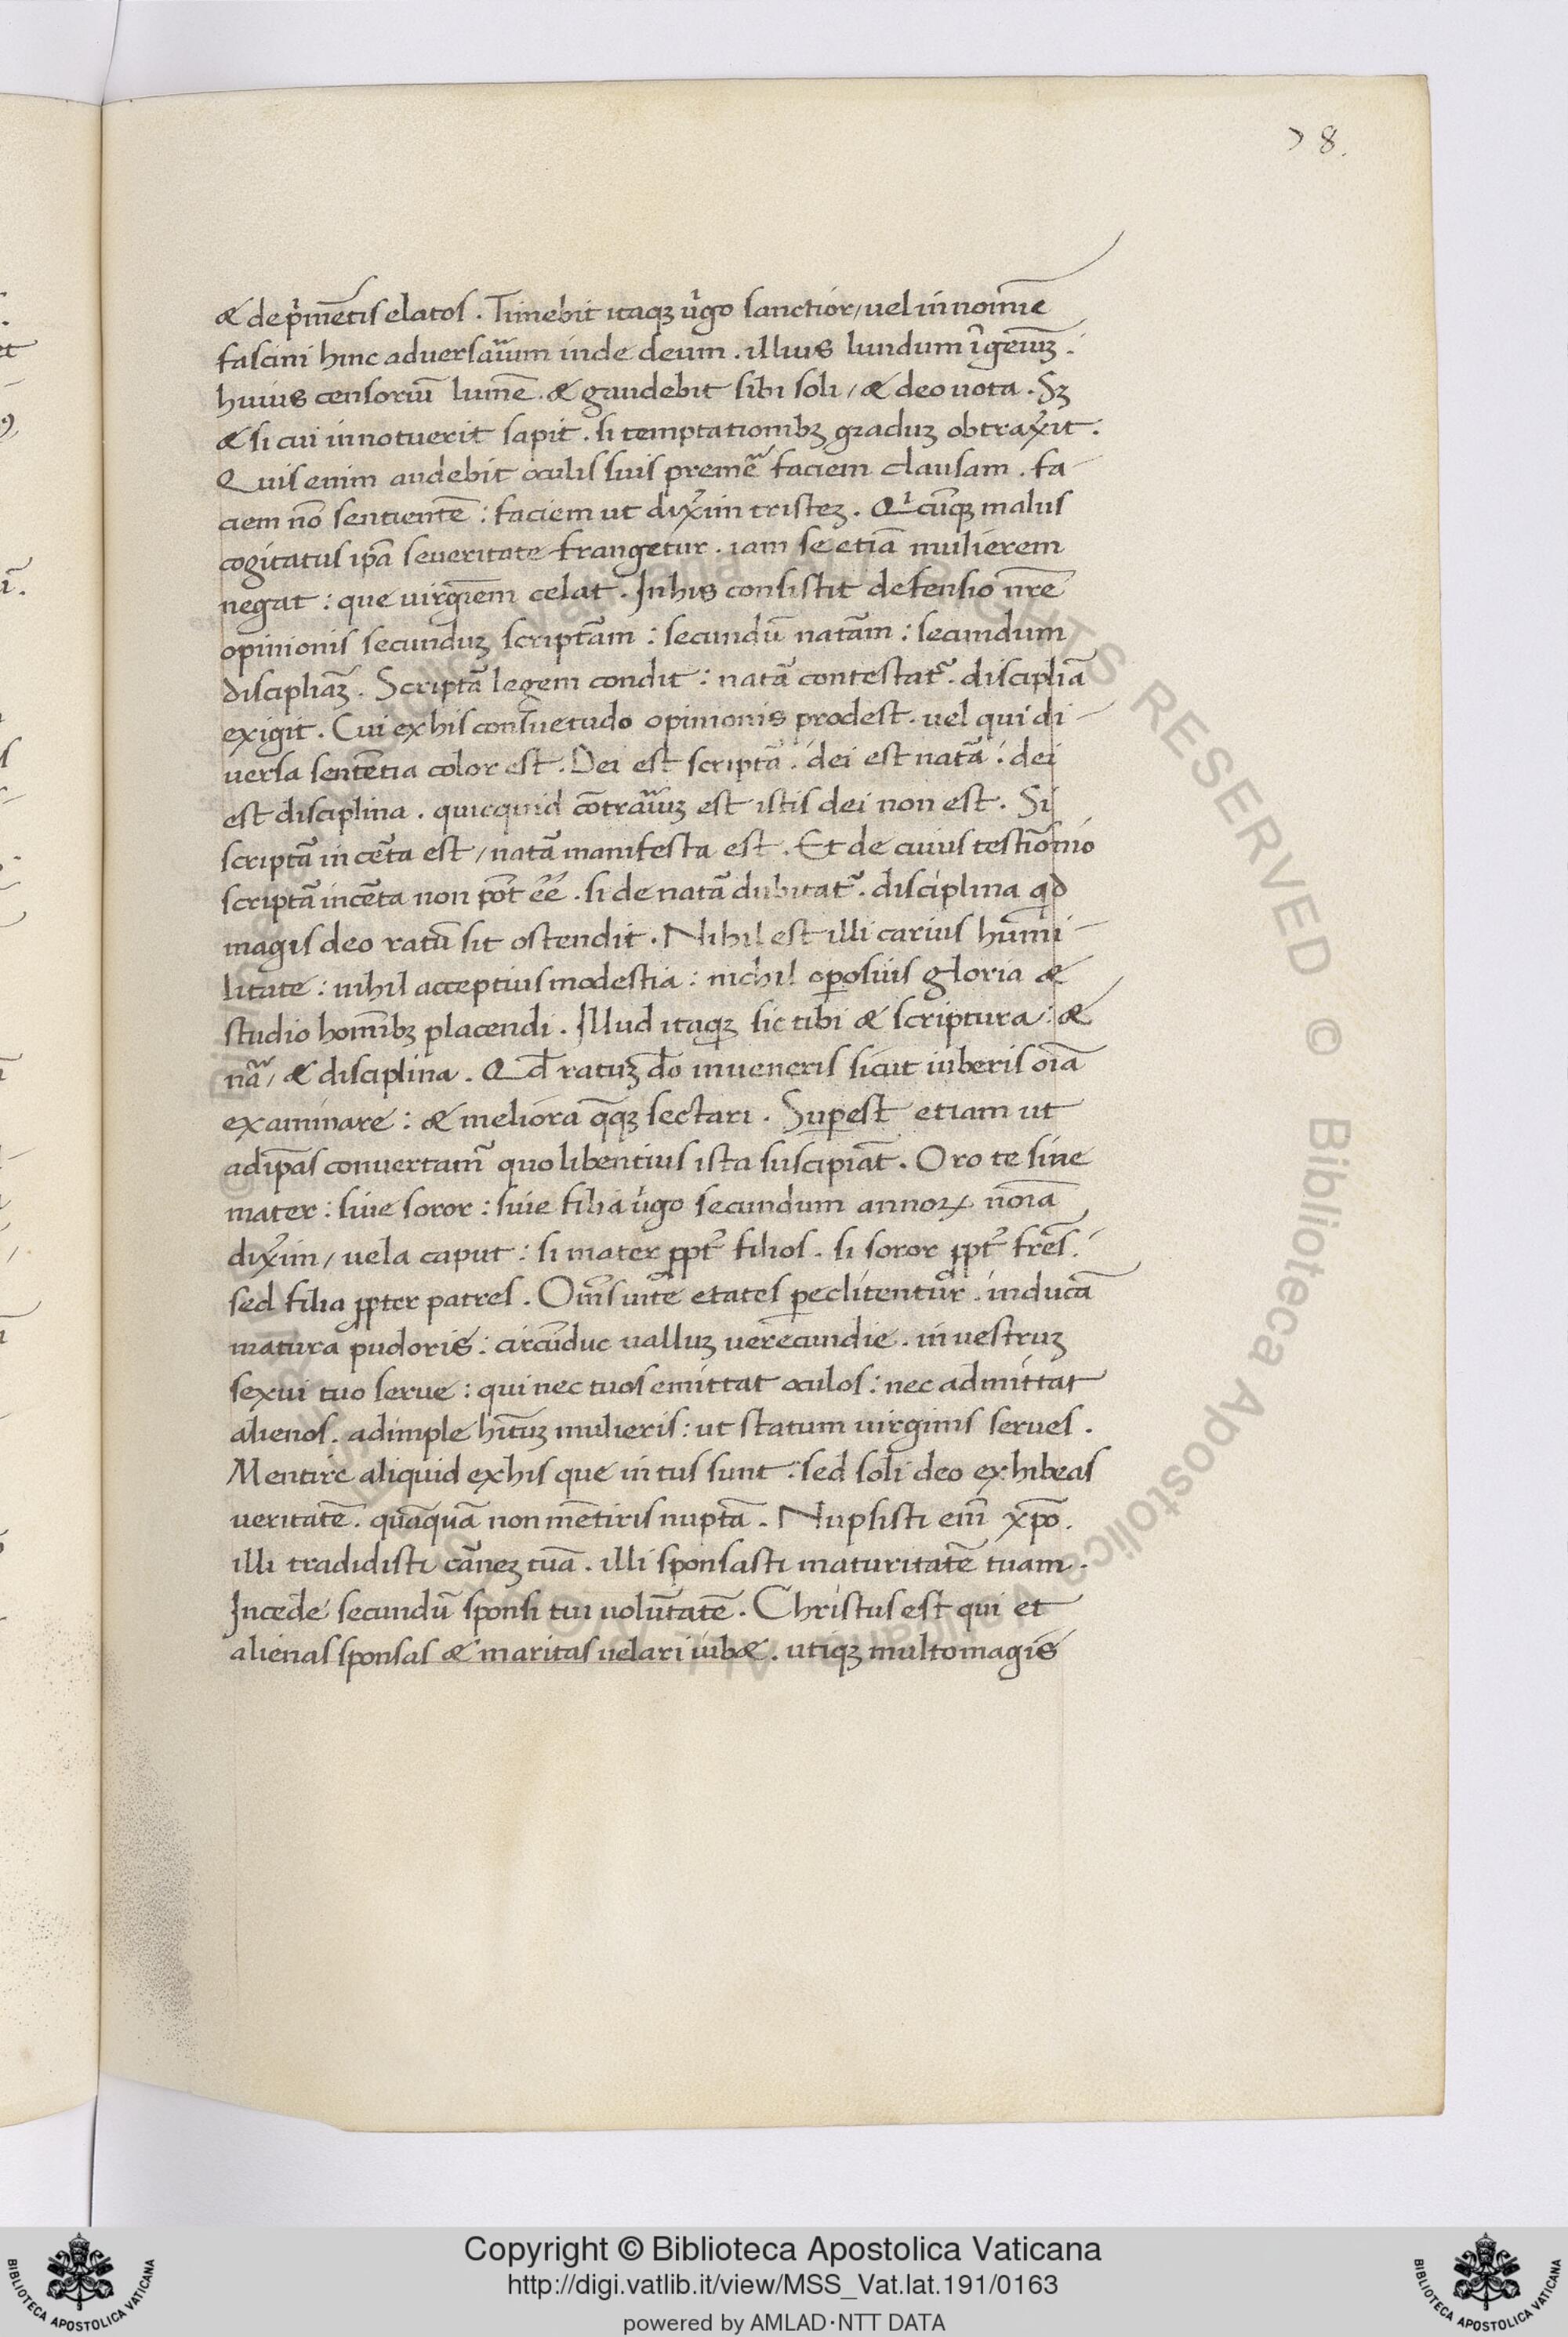 78.
& dep̄mētis elatos. Timebit itaqꝫ v̄go sanctior/ vel in nomīe
fascini hinc adversarium inde deum. illius liuidum īgeniuꝫ.
huius censoriū lumē. & gaudebit sibi soli / & deo nota. Sꝫ
& si cui innotuerit sapit. si temptationibꝫ graduꝫ obtraxit.
Quis enim audebit oculis suis premē faciem clausam. fa-
ciem nō sentientē : faciem ut dixim tristeꝫ. Qicūqꝫ malus
cogitatus ip̄a severitate frangetur. iam se etiā mulierem
negat : que virginem celat. In his consistit defensio nrē
opinionis secunduꝫ scriptām : secundū natām : secundum
discipliāꝫ. Scriptā legem condit : natā contestatr̄. discipliā
exigit. Cui ex his consuetudo opinionis prodest. vel qui di-
versa sentētia color est. Dei est scriptā : dei est natā : dei
est disciplina. quicquid cōtrariuꝫ est istis dei non est. Si
scriptā incēta est / natā manifesta est. Et de cuius testiōnio
scriptā incēta non pōt ēē. si de natā dubitatr̄. disciplina qd
magis deo ratū sit ostendit. Nihil est illi carius humi-
litate : nihil acceptius modestia : nichil oꝑosius gloria &
studio homībꝫ placendi. Illud itaqꝫ sic tibi & scriptura : &
nā / & disciplina. Qd̄ ratuꝫ dō inveneris sicut iuberis oīa
examinare : & meliora q̄qꝫ sectari. Suꝑest etiam ut
ad ip̄as convertamr̄ quo libentius ista suscipiāt. Oro te sive
mater : sive soror : sive filia v̄go secundum annoꝝ noīa
dixim / vela caput : si mater ꝓpt̄ filios. si soror ꝓpt̄ frēs.
sed filia ꝓpter patres. Om̄s uite etates ꝑeclitentur. inducā
matura pudoris : circūduc valluꝫ verecundie. in vestruꝫ
sexui tuo serue : qui nec tuos emittat oculos : nec admittat
alienos. adimple hītuꝫ mulieris : ut statum virginis serves.
Mentire aliquid ex his que intus sunt. sed soli deo exhibeas
veritatē. quāquā non mētiris nuptā. Nupsisti eīm xp̄o.
illi tradidisti cārneꝫ tuā. illi sponsasti maturitatē tuam.
Incede secundū sponsi tui volūtatē. Christus est qui et
alienas sponsas & maritas velari iub&. utiqꝫ multo magis
Copyright © Biblioteca Apostolica Vaticana
http://digi.vatlib.it/view/MSS_Vat.lat.191/0163
powered by AMLAD·NTT DATA
BIBLIOTECA APOSTOLICA VATICANA
BIBLIOTECA APOSTOLICA VATICANA